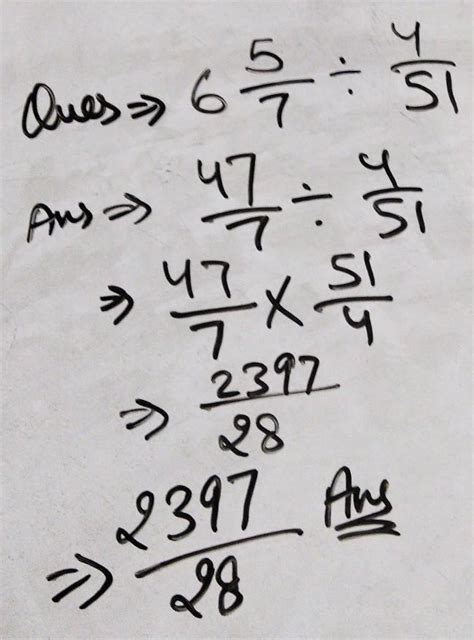 Ques ⇒ 6 5/7 ÷ 4/51
Ans ⇒ 47/7 ÷ 4/51
⇒ 47/7 × 51/4
⇒ 2397/28
⇒ 2397/28 Ans